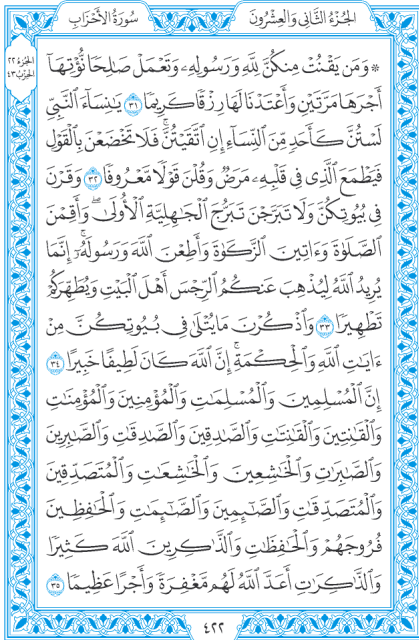 الجُزْءُ الثَّانِي وَالعِشْرُونَ
سُورَةُ الأَحْزَابِ
الجُزْءُ ٢٢
الحِزْبُ ٤٣
۞ وَمَن يَقْنُتْ مِنكُنَّ لِلَّهِ وَرَسُولِهِۦ وَتَعْمَلْ صَٰلِحًا نُّؤْتِهَآ
أَجْرَهَا مَرَّتَيْنِ وَأَعْتَدْنَا لَهَا رِزْقًا كَرِيمًا ٣١ يَٰنِسَآءَ ٱلنَّبِيِّ
لَسْتُنَّ كَأَحَدٍ مِّنَ ٱلنِّسَآءِ إِنِ ٱتَّقَيْتُنَّۚ فَلَا تَخْضَعْنَ بِٱلْقَوْلِ
فَيَطْمَعَ ٱلَّذِي فِي قَلْبِهِۦ مَرَضٌ وَقُلْنَ قَوْلًا مَّعْرُوفًا ٣٢ وَقَرْنَ
فِي بُيُوتِكُنَّ وَلَا تَبَرَّجْنَ تَبَرُّجَ ٱلْجَٰهِلِيَّةِ ٱلْأُولَىٰۖ وَأَقِمْنَ
ٱلصَّلَوٰةَ وَءَاتِينَ ٱلزَّكَوٰةَ وَأَطِعْنَ ٱللَّهَ وَرَسُولَهُۥٓۚ إِنَّمَا
يُرِيدُ ٱللَّهُ لِيُذْهِبَ عَنكُمُ ٱلرِّجْسَ أَهْلَ ٱلْبَيْتِ وَيُطَهِّرَكُمْ
تَطْهِيرًا ٣٣ وَٱذْكُرْنَ مَا يُتْلَىٰ فِي بُيُوتِكُنَّ مِنْ
ءَايَٰتِ ٱللَّهِ وَٱلْحِكْمَةِۚ إِنَّ ٱللَّهَ كَانَ لَطِيفًا خَبِيرًا ٣٤
إِنَّ ٱلْمُسْلِمِينَ وَٱلْمُسْلِمَٰتِ وَٱلْمُؤْمِنِينَ وَٱلْمُؤْمِنَٰتِ
وَٱلْقَٰنِتِينَ وَٱلْقَٰنِتَٰتِ وَٱلصَّٰدِقِينَ وَٱلصَّٰدِقَٰتِ وَٱلصَّٰبِرِينَ
وَٱلصَّٰبِرَٰتِ وَٱلْخَٰشِعِينَ وَٱلْخَٰشِعَٰتِ وَٱلْمُتَصَدِّقِينَ
وَٱلْمُتَصَدِّقَٰتِ وَٱلصَّٰٓئِمِينَ وَٱلصَّٰٓئِمَٰتِ وَٱلْحَٰفِظِينَ
فُرُوجَهُمْ وَٱلْحَٰفِظَٰتِ وَٱلذَّٰكِرِينَ ٱللَّهَ كَثِيرًا
وَٱلذَّٰكِرَٰتِ أَعَدَّ ٱللَّهُ لَهُم مَّغْفِرَةً وَأَجْرًا عَظِيمًا ٣٥
٤٢٢